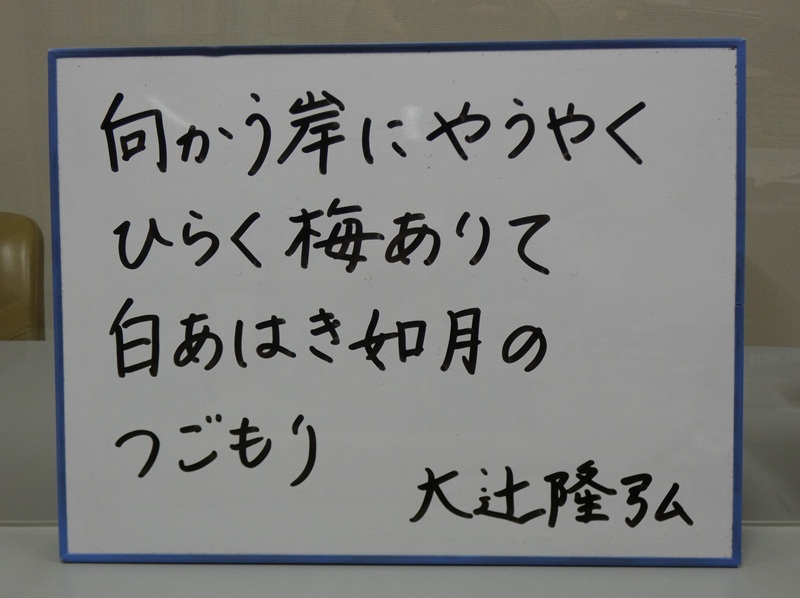 向かう岸にやうやく
ひらく梅ありて
白あはき如月の
つごもり
大辻隆弘